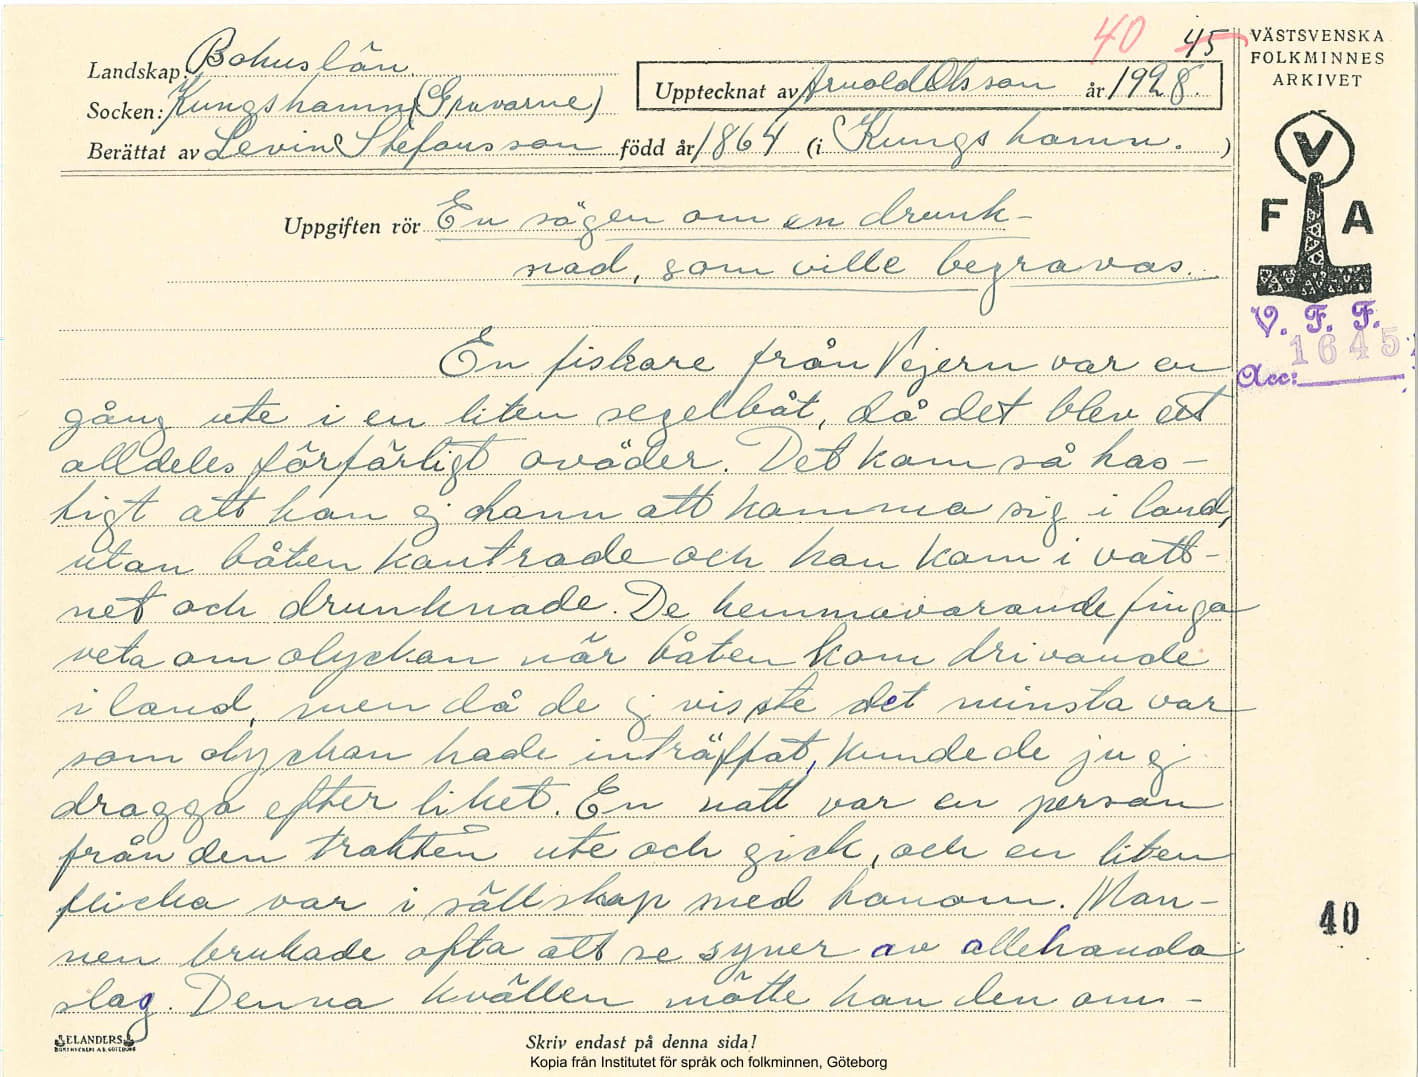 40 45
VÄSTSVENSKA
FOLKMINNES
ARKIVET
Landskap: Bohuslän.
Upptecknat av Arnold Olsson år 1928.
Socken: Kungshamn (Gravarne)
Berättat av Levin Stefansson född år 1864 (i Kungshamn.)
V
F A
Uppgiften rör En sägen om en drunk-
nad, som ville begravas.
V. F. F.
Acc: 1645
En fiskare från Vejern var en
gång ute i en liten segelbåt, då det blev ett
alldeles förfärligt oväder. Det kom så has-
tigt att han ej hann att komma sig i land,
utan båten kantrade och han kom i vatt-
net och drunknade. De hemmavarande finga
veta om olyckan när båten kom drivande
i land, men då de ej visste det minsta var
som olyckan hade inträffat, kunde de ju ej
dragga efter liket. En natt var en person
från den trakten ute och gick, och en liten
flicka var i sällskap med honom. Man-
nen brukade ofta att se syner av allehanda
slag. Denna kvällen mötte han den om-
40
ELANDERS
BOKTRYCKERI A.B. GÖTEBORG
Skriv endast på denna sida!
Kopia från Institutet för språk och folkminnen, Göteborg